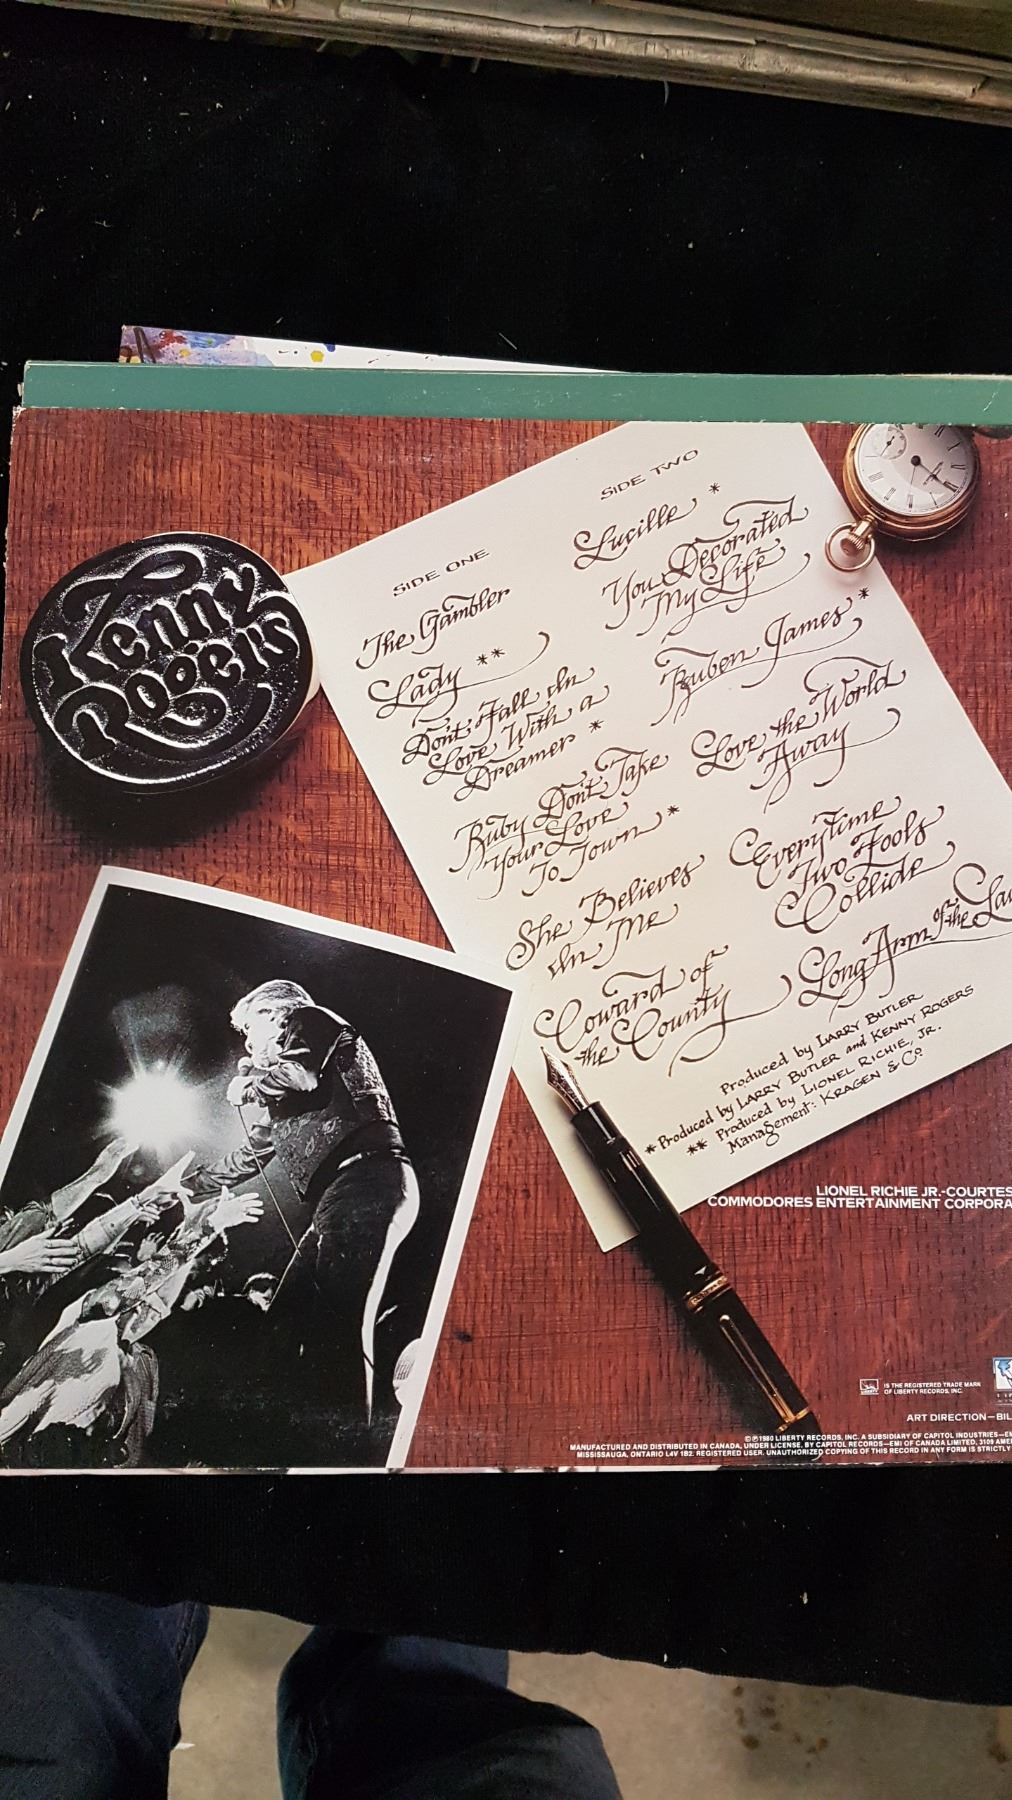 Kenny
Rogers
SIDE ONE
The Gambler
Lady **
Don't Fall In
Love With a
Dreamer *
Ruby Don't Take
Your Love
To Town *
She Believes
In Me
Coward of
the County
SIDE TWO
Lucille *
You Decorated
My Life
Ruben James *
Love the World
Away
Everytime
Two Fools
Collide
Long Arm of the Law
Produced by LARRY BUTLER
* Produced by LARRY BUTLER and KENNY ROGERS
** Produced by LIONEL RICHIE, JR.
Management: KRAGEN & Co.
LIONEL RICHIE JR.-COURTES
COMMODORES ENTERTAINMENT CORPORA
LIBERTY
IS THE REGISTERED TRADE MARK
OF LIBERTY RECORDS, INC.
ART DIRECTION—BIL
©℗1980 LIBERTY RECORDS, INC. A SUBSIDIARY OF CAPITOL INDUSTRIES—EM
MANUFACTURED AND DISTRIBUTED IN CANADA, UNDER LICENSE, BY CAPITOL RECORDS—EMI OF CANADA LIMITED, 3109 AME
MISSISSAUGA, ONTARIO L4V 1B2. REGISTERED USER. UNAUTHORIZED COPYING OF THIS RECORD IN ANY FORM IS STRICTLY